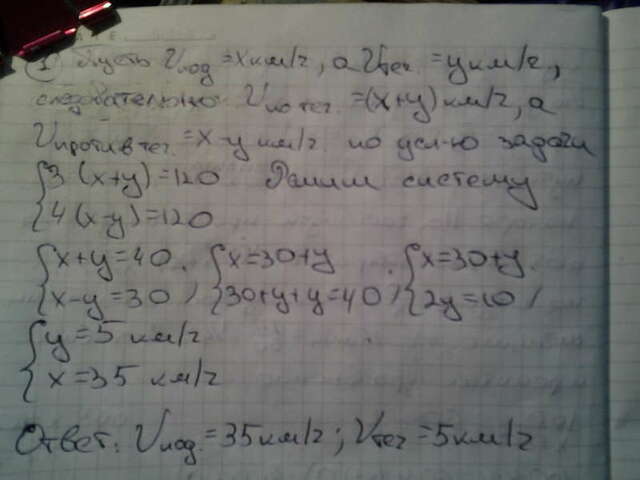 ① Пусть Vлод = x км/ч, а Vтеч. = y км/ч,
следовательно Vпо теч. = (x+y) км/ч, а
Vпротив теч. = x-y км/ч. по усл-ю задачи
{3(x+y)=120 Решим систему
{4(x-y)=120
{x+y=40 {x=30+y {x=30+y
{x-y=30 , {30+y+y=40 , {2y=10 ,
{y=5 км/ч
{x=35 км/ч
Ответ: Vлод.=35км/ч; Vтеч=5км/ч